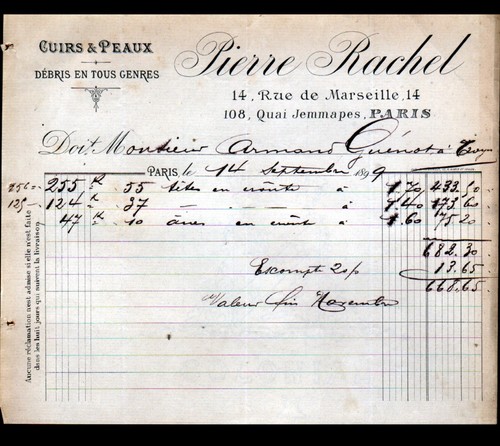 CUIRS & PEAUX
DÉBRIS EN TOUS GENRES
Pierre Rachel
14, Rue de Marseille, 14
108, Quai Jemmapes, PARIS
Doit Monsieur Armand Guénot à Troyes
PARIS, le 14 Septembre 1899
255 k 55 têtes en croûte à 1.70 433.50
124 k - 37 - - 1.40 173.60
47 k 10 ânes en croûte à 1.60 75.20
682.30
Escompte 2 o/o 13.65
668.65
Valeur fin Novembre
Aucune réclamation n'est admise si elle n'est faite
dans les huit jours qui suivent la livraison.